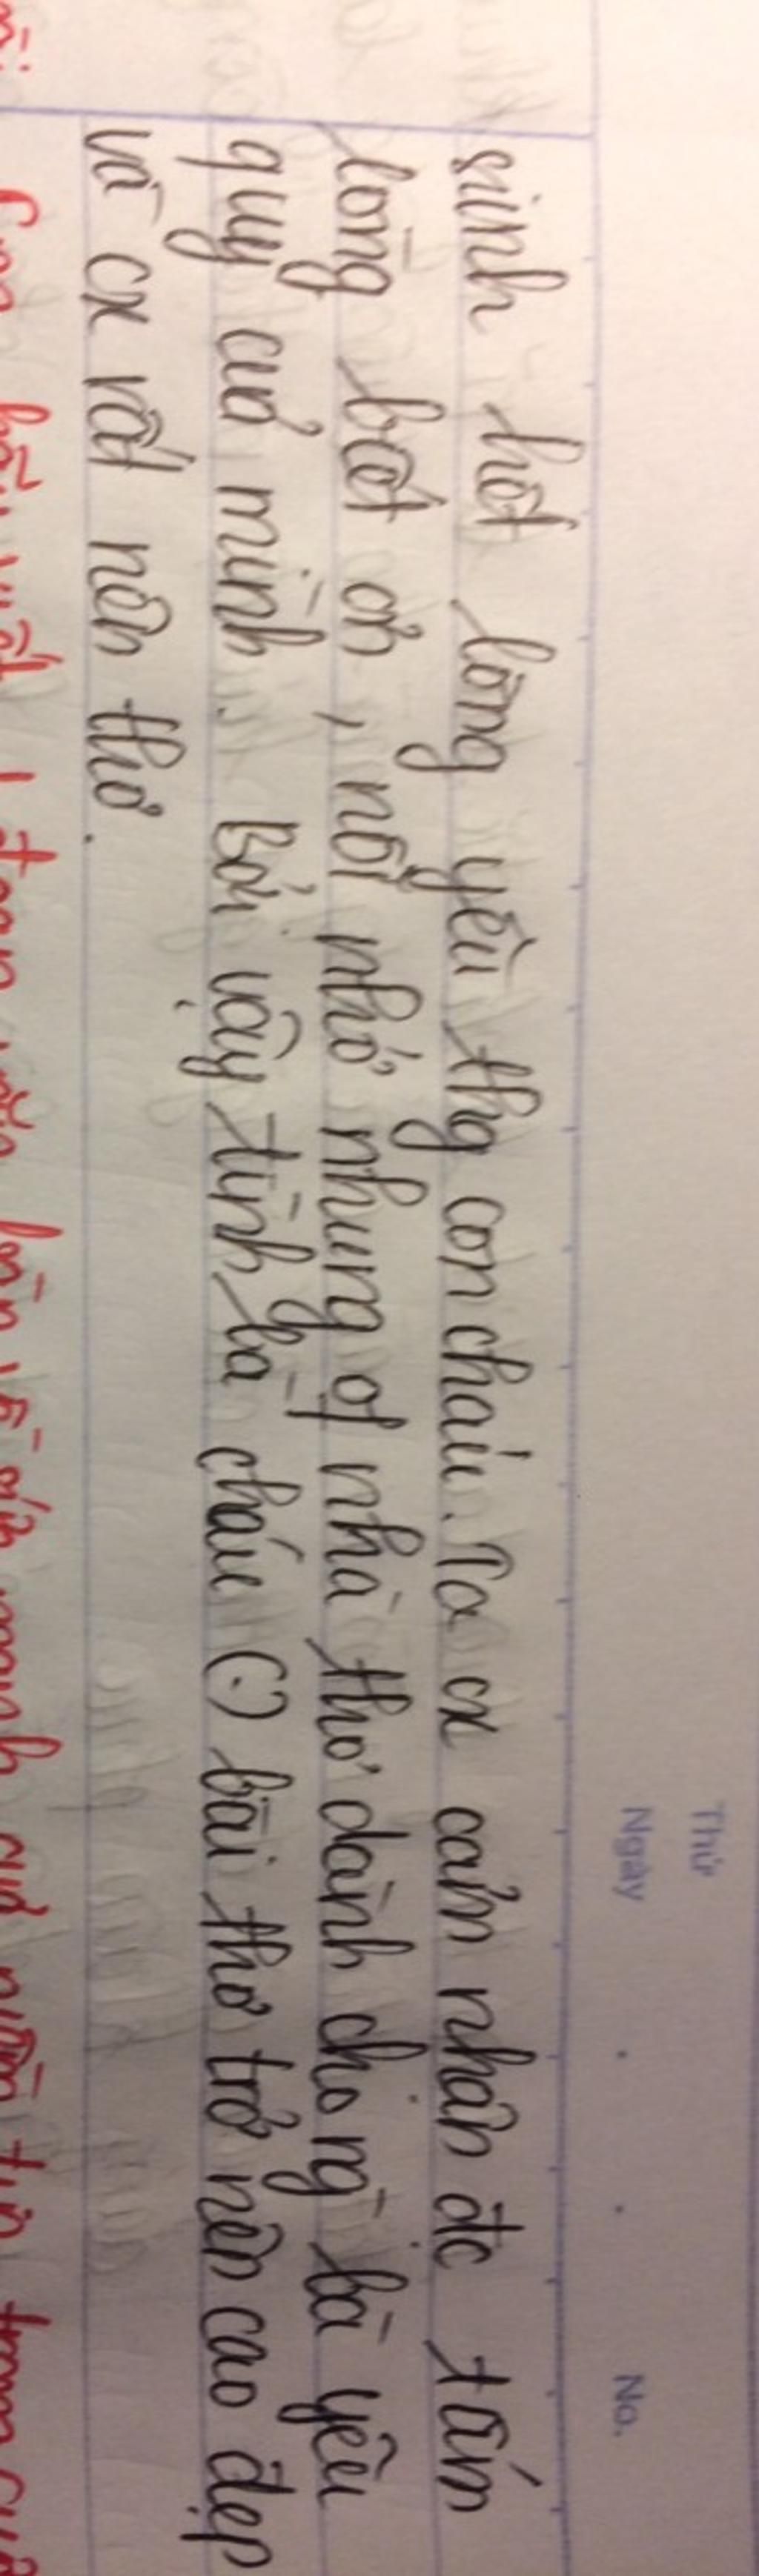 Thứ
Ngày
No.
sinh hết lòng yêu thg con cháu. Ta cx cảm nhận đc tấm
lòng biết ơn, nỗi nhớ nhung of nhà thơ dành cho ng bà yêu
quý của mình. Bởi vậy tình bà cháu (.) bài thơ trở nên cao đẹp
và cx rất nên thơ.